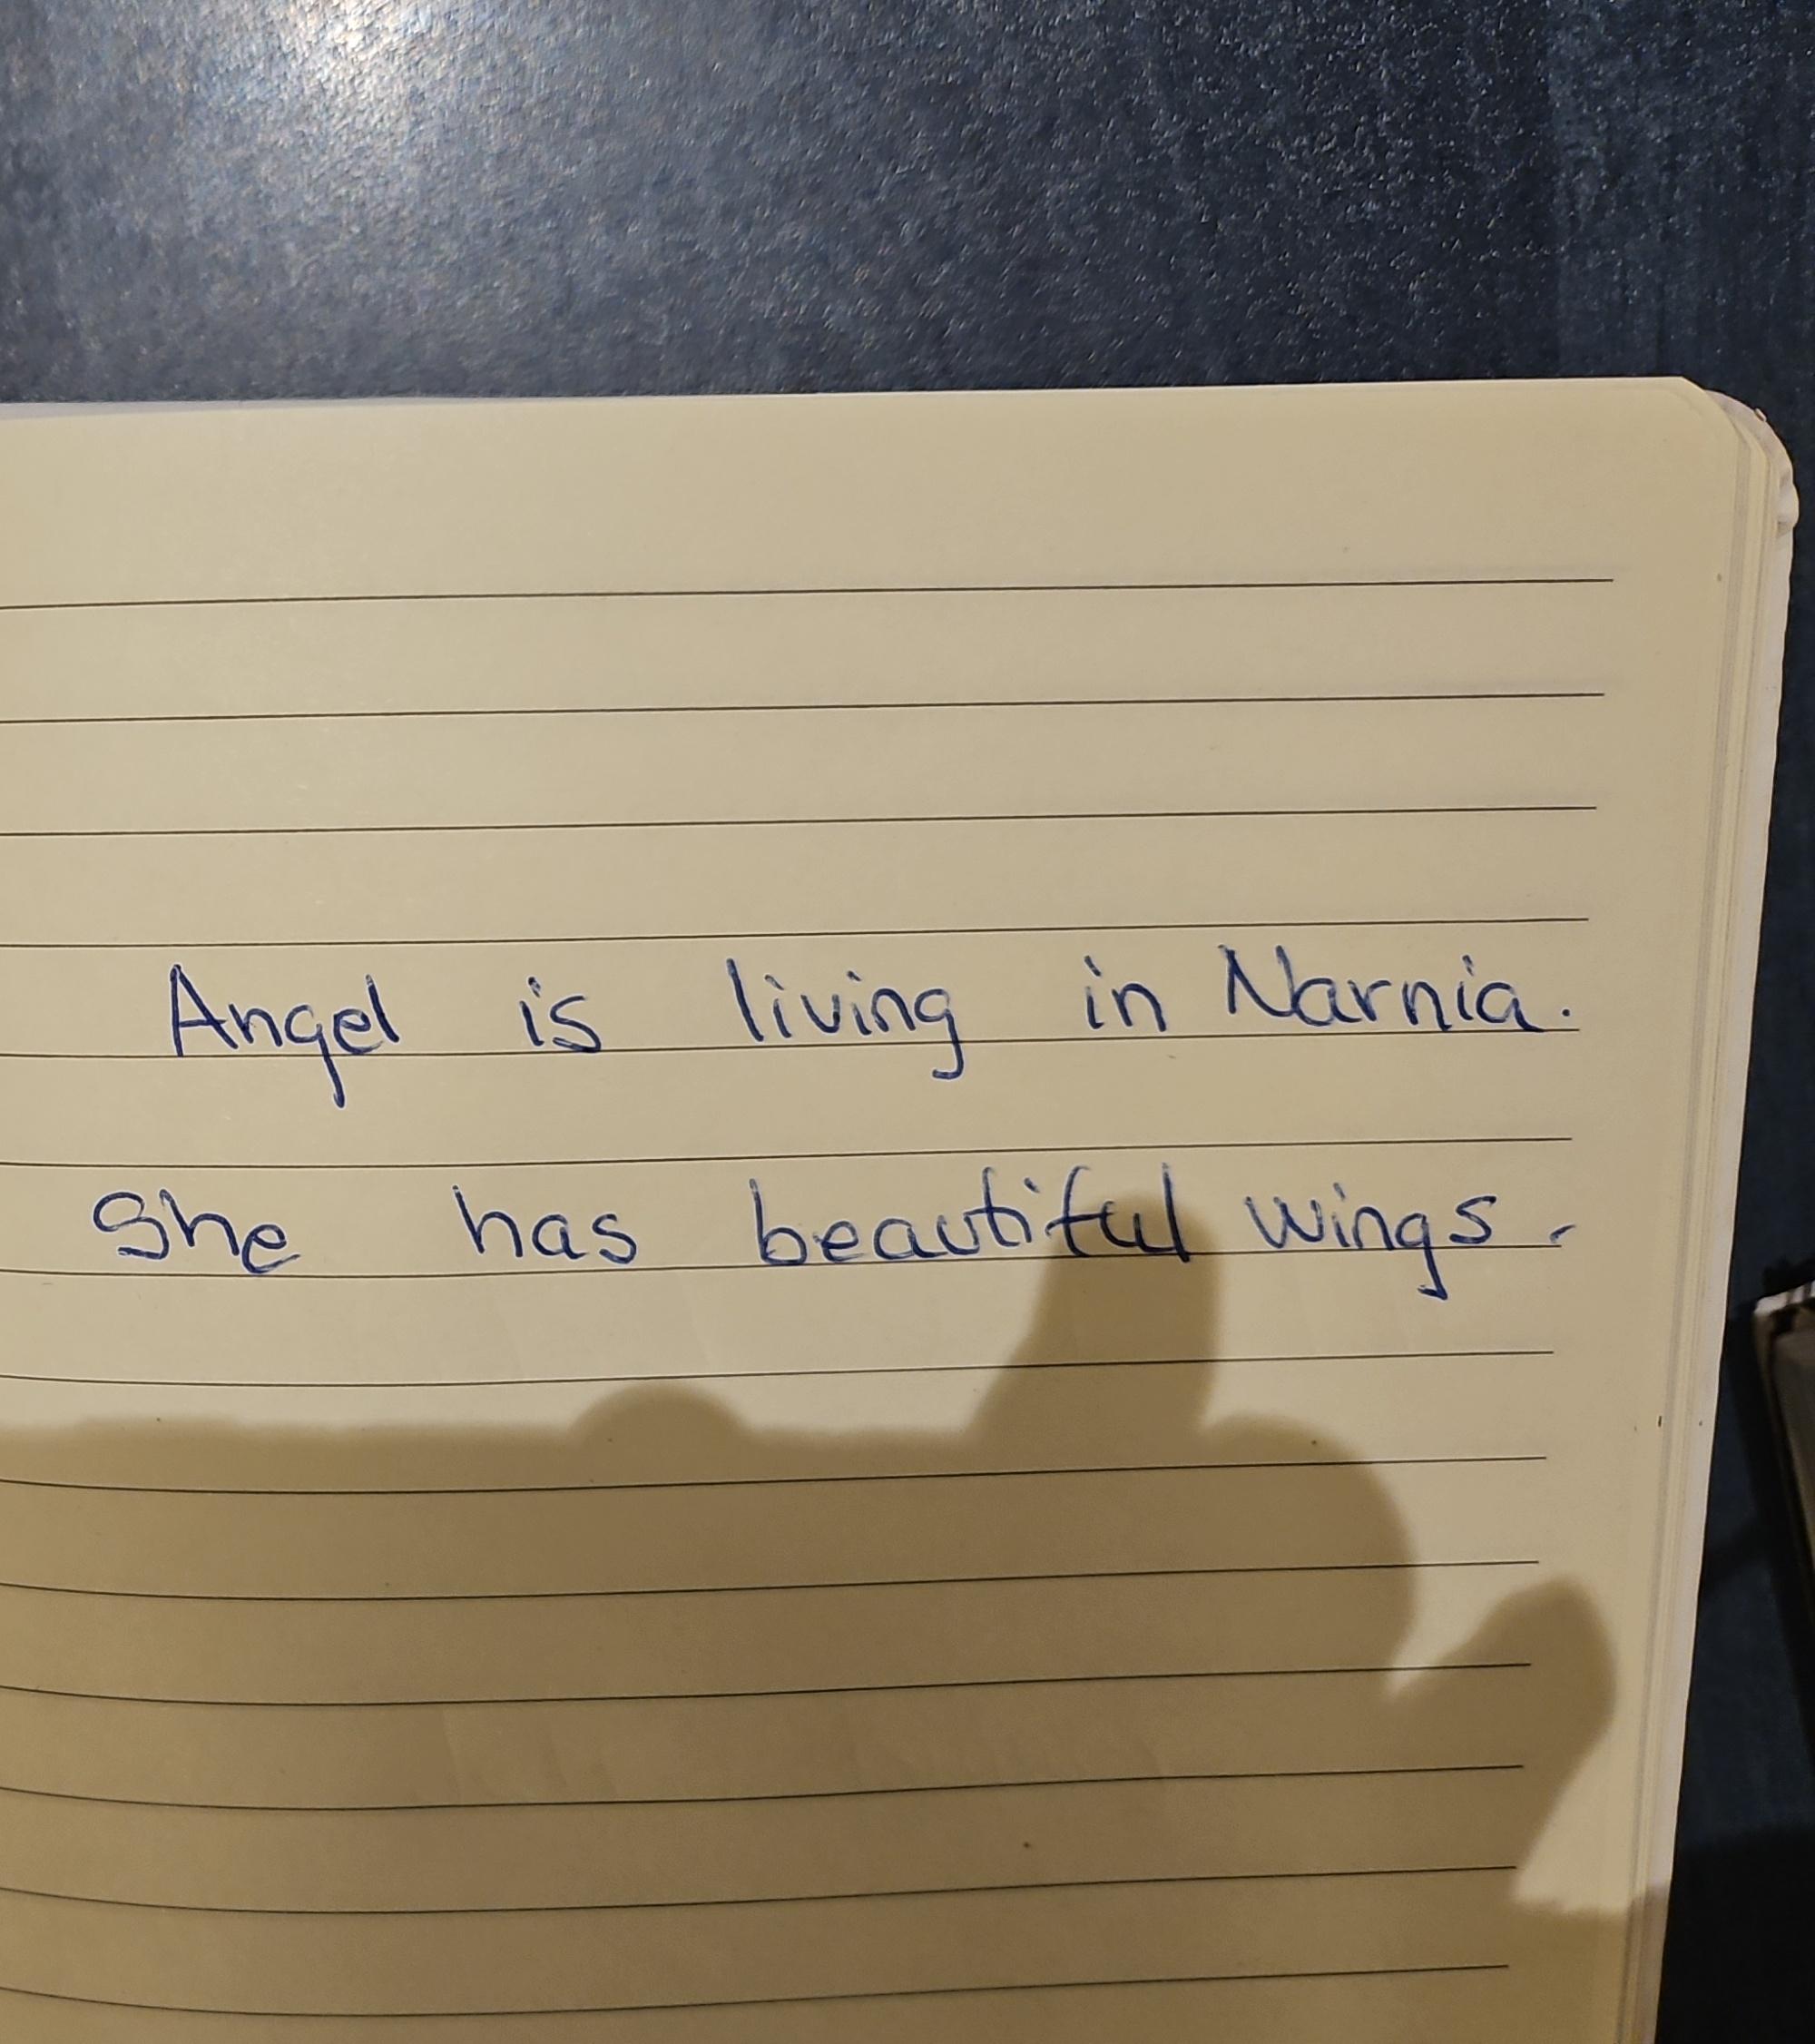 Angel is living in Narnia.
She has beautiful wings.